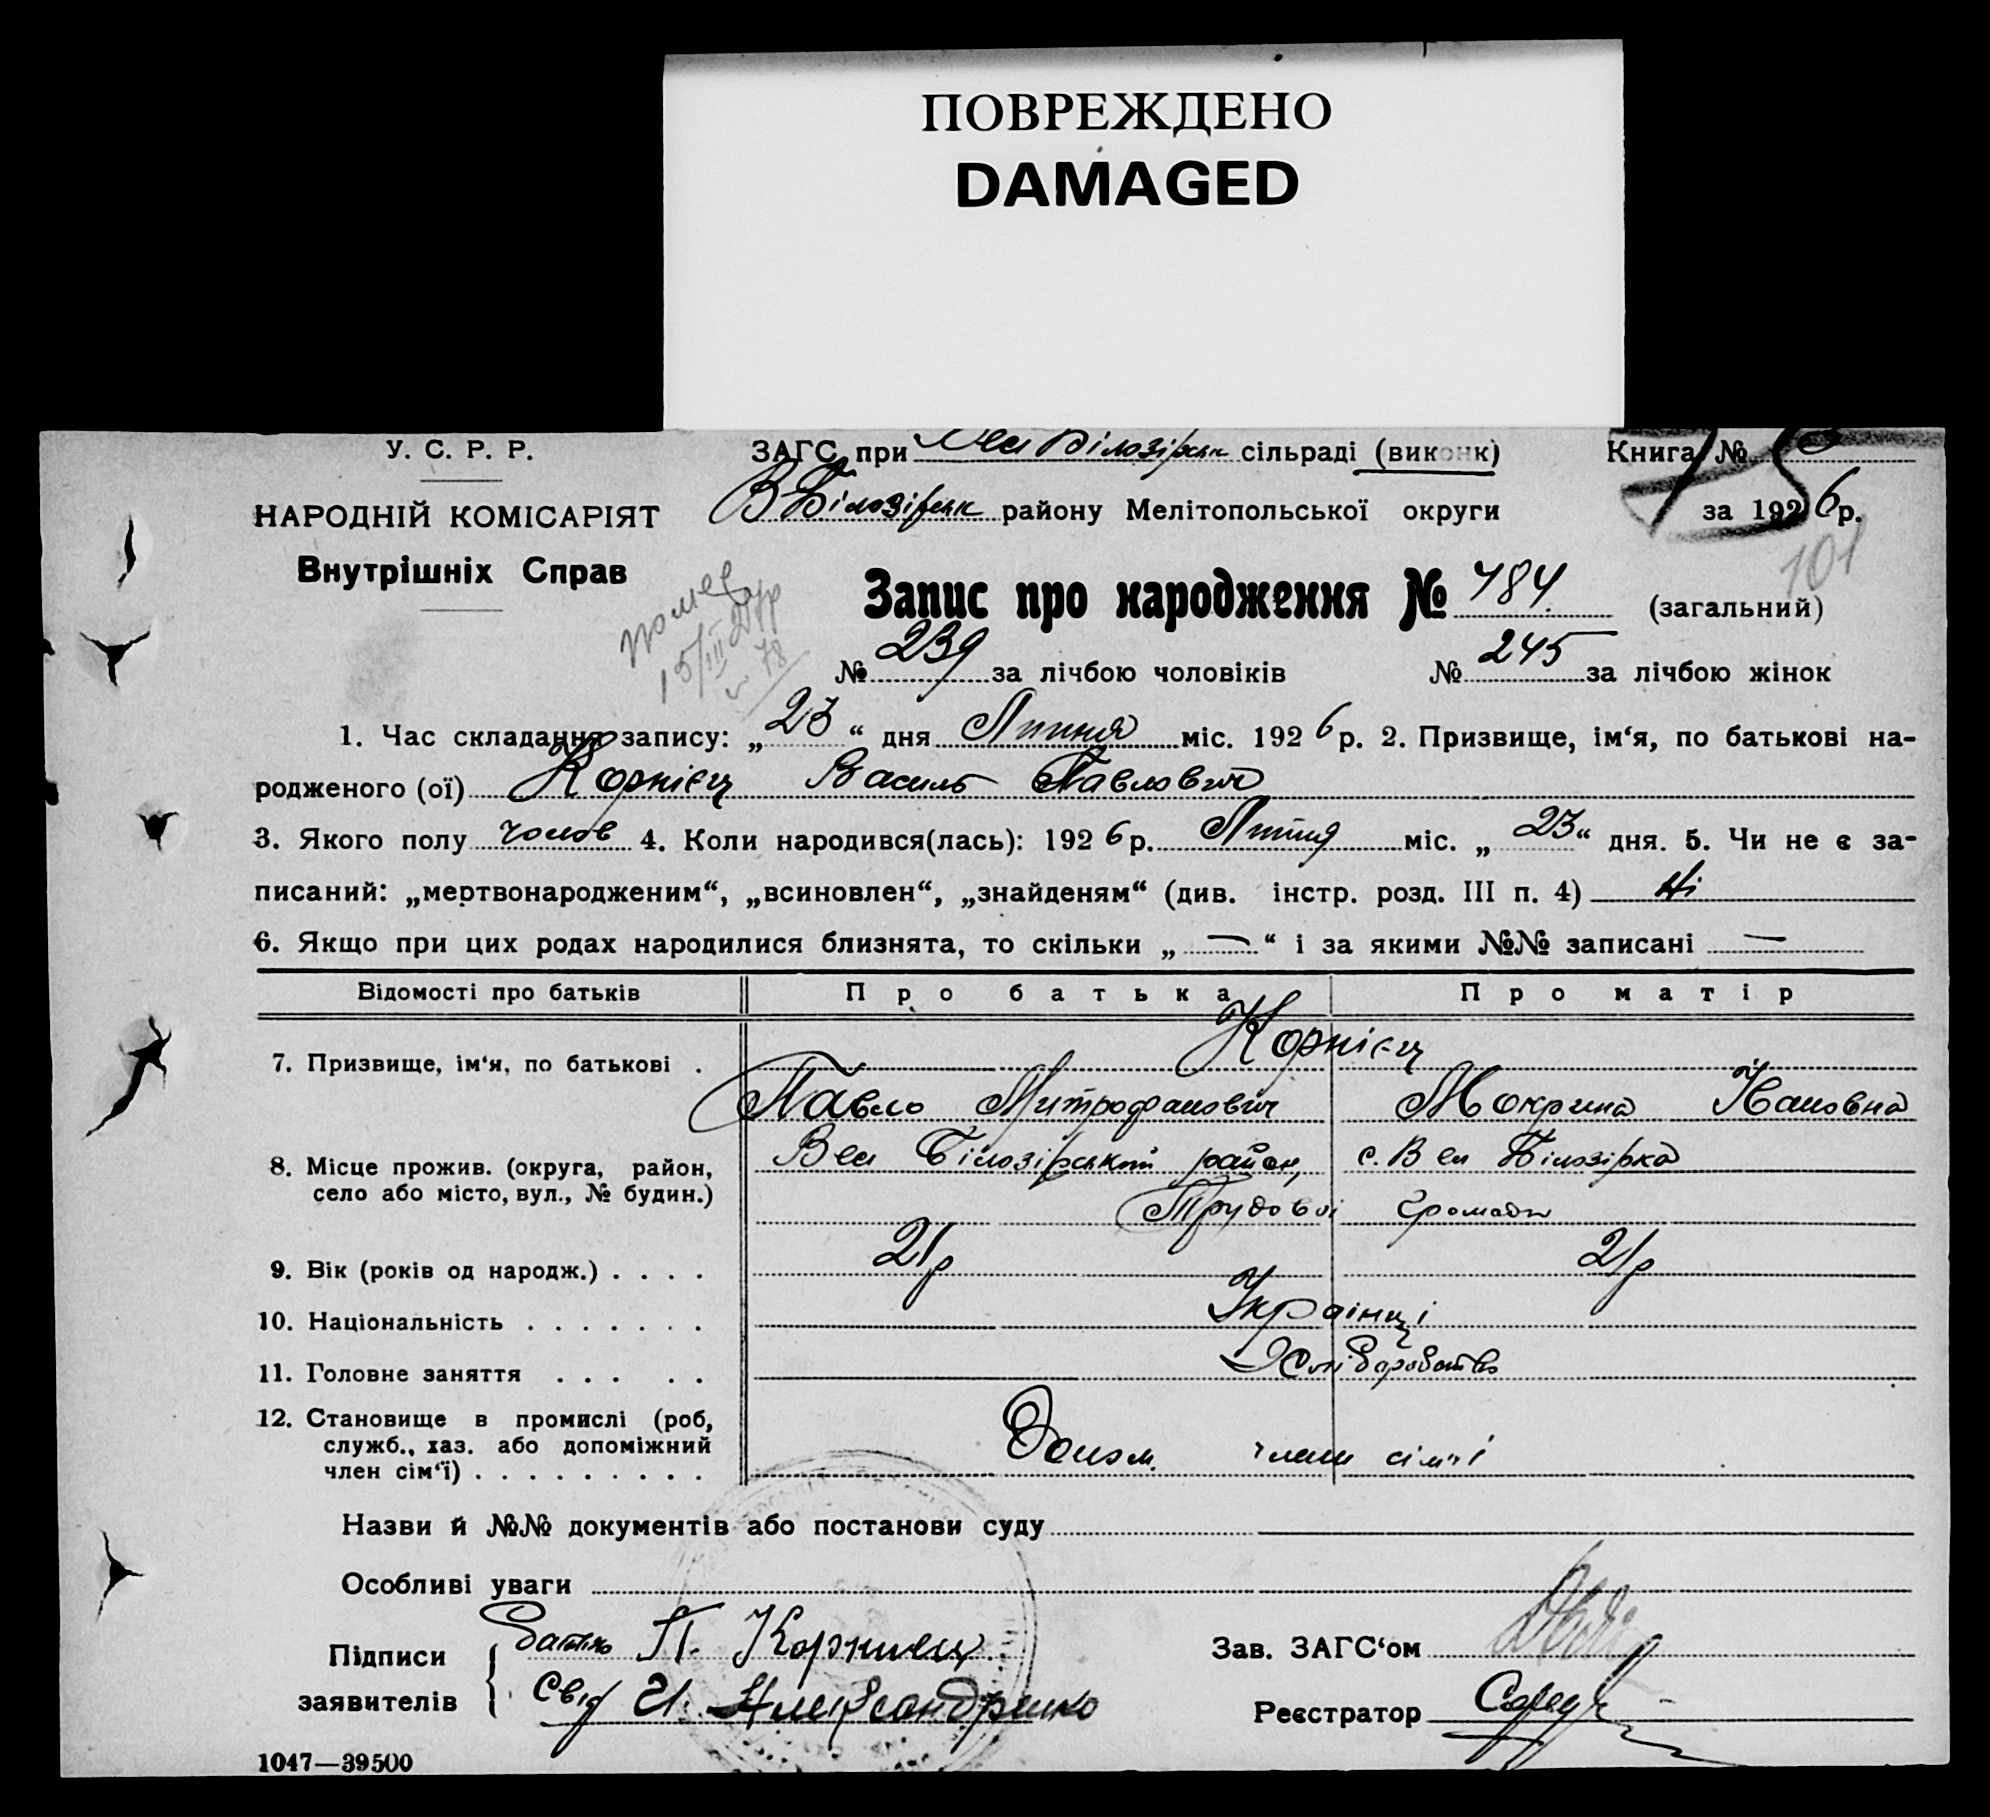 ПОВРЕЖДЕНО
DAMAGED
У. С. Р. Р.
ЗАГС при Вел Білозірськ сільраді (виконк)
Книга №
НАРОДНІЙ КОМІСАРІЯТ
Внутрішніх Справ
В Білозірськ району Мелітопольської округи
за 1926 р.
101
Запис про народження № 484. (загальний)
15/III
№ 239 за лічбою чоловіків № 245 за лічбою жінок
1. Час складання запису: „23“ дня Липня міс. 1926 р. 2. Призвище, ім‘я, по батькові на-
родженого (ої) Корнієц Василь Павлович
3. Якого полу чолов 4. Коли народився(лась): 1926 р. Липня міс. „23“ дня. 5. Чи не є за-
писаний: „мертвонародженим“, „всиновлен“, „знайденям“ (див. інстр. розд. III п. 4) Ні
6. Якщо при цих родах народилися близнята, то скільки „—“ і за якими №№ записані —
Відомості про батьків Про батька Про матір
7. Призвище, ім‘я, по батькові . Корнієц
Павло Митрофанович Мокрина Івановна
8. Місце прожив. (округа, район, село або місто, вул., № будин.)
Вел Білозірський район, с. Вел Білозірка
Трудової громади
9. Вік (років од народж.) . . . . 21 р 21 р
10. Національність . . . . . . . Українці
11. Головне заняття . . . . . Хліборобство
12. Становище в промислі (роб,
служб., хаз. або допоміжний
член сім‘ї) . . . . . . . . . Допом. члени сім'ї
Назви й №№ документів або постанови суду
Особливі уваги
Підписи заявителів
батько П. Корниец
Свід И. Александренко
Зав. ЗАГС‘ом
Реєстратор
1047—39500